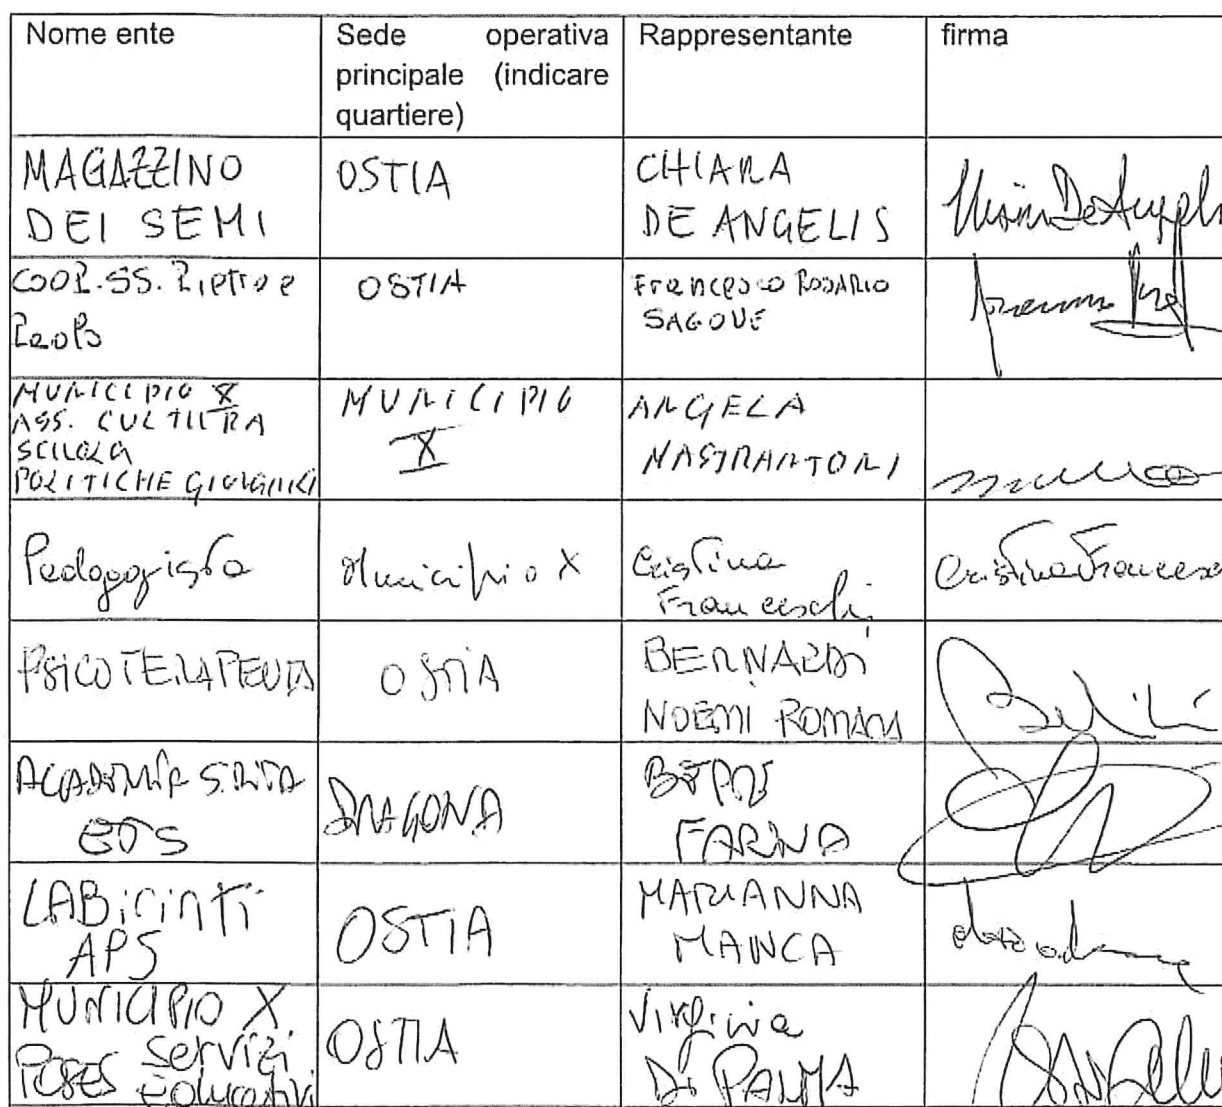 Nome ente
Sede operativa
principale (indicare
quartiere)
Rappresentante
firma
MAGAZZINO
DEI SEMI
OSTIA
CHIARA
DE ANGELIS
COOP. SS. Pietro e
Paolo
OSTIA
Francesco ROSARIO
SAGONE
MUNICIPIO X
ASS. CULTURA
SCUOLA
POLITICHE GIOVANILI
MUNICIPIO
X
ANGELA
MASTRANTONI
Pedagogista
Municipio X
Cristina
Franceschi
Cristina Francesc
PSICOTERAPEUTA
OSTIA
BERNARDI
NOEMI ROMANA
ACADEMIA
ETS
DRAGONA
BEPPE
FARINA
LABirinti
APS
OSTIA
MARIANNA
MANCA
MUNICIPIO X
POSES Servizi
Educativi
OSTIA
Virginia
Di PALMA